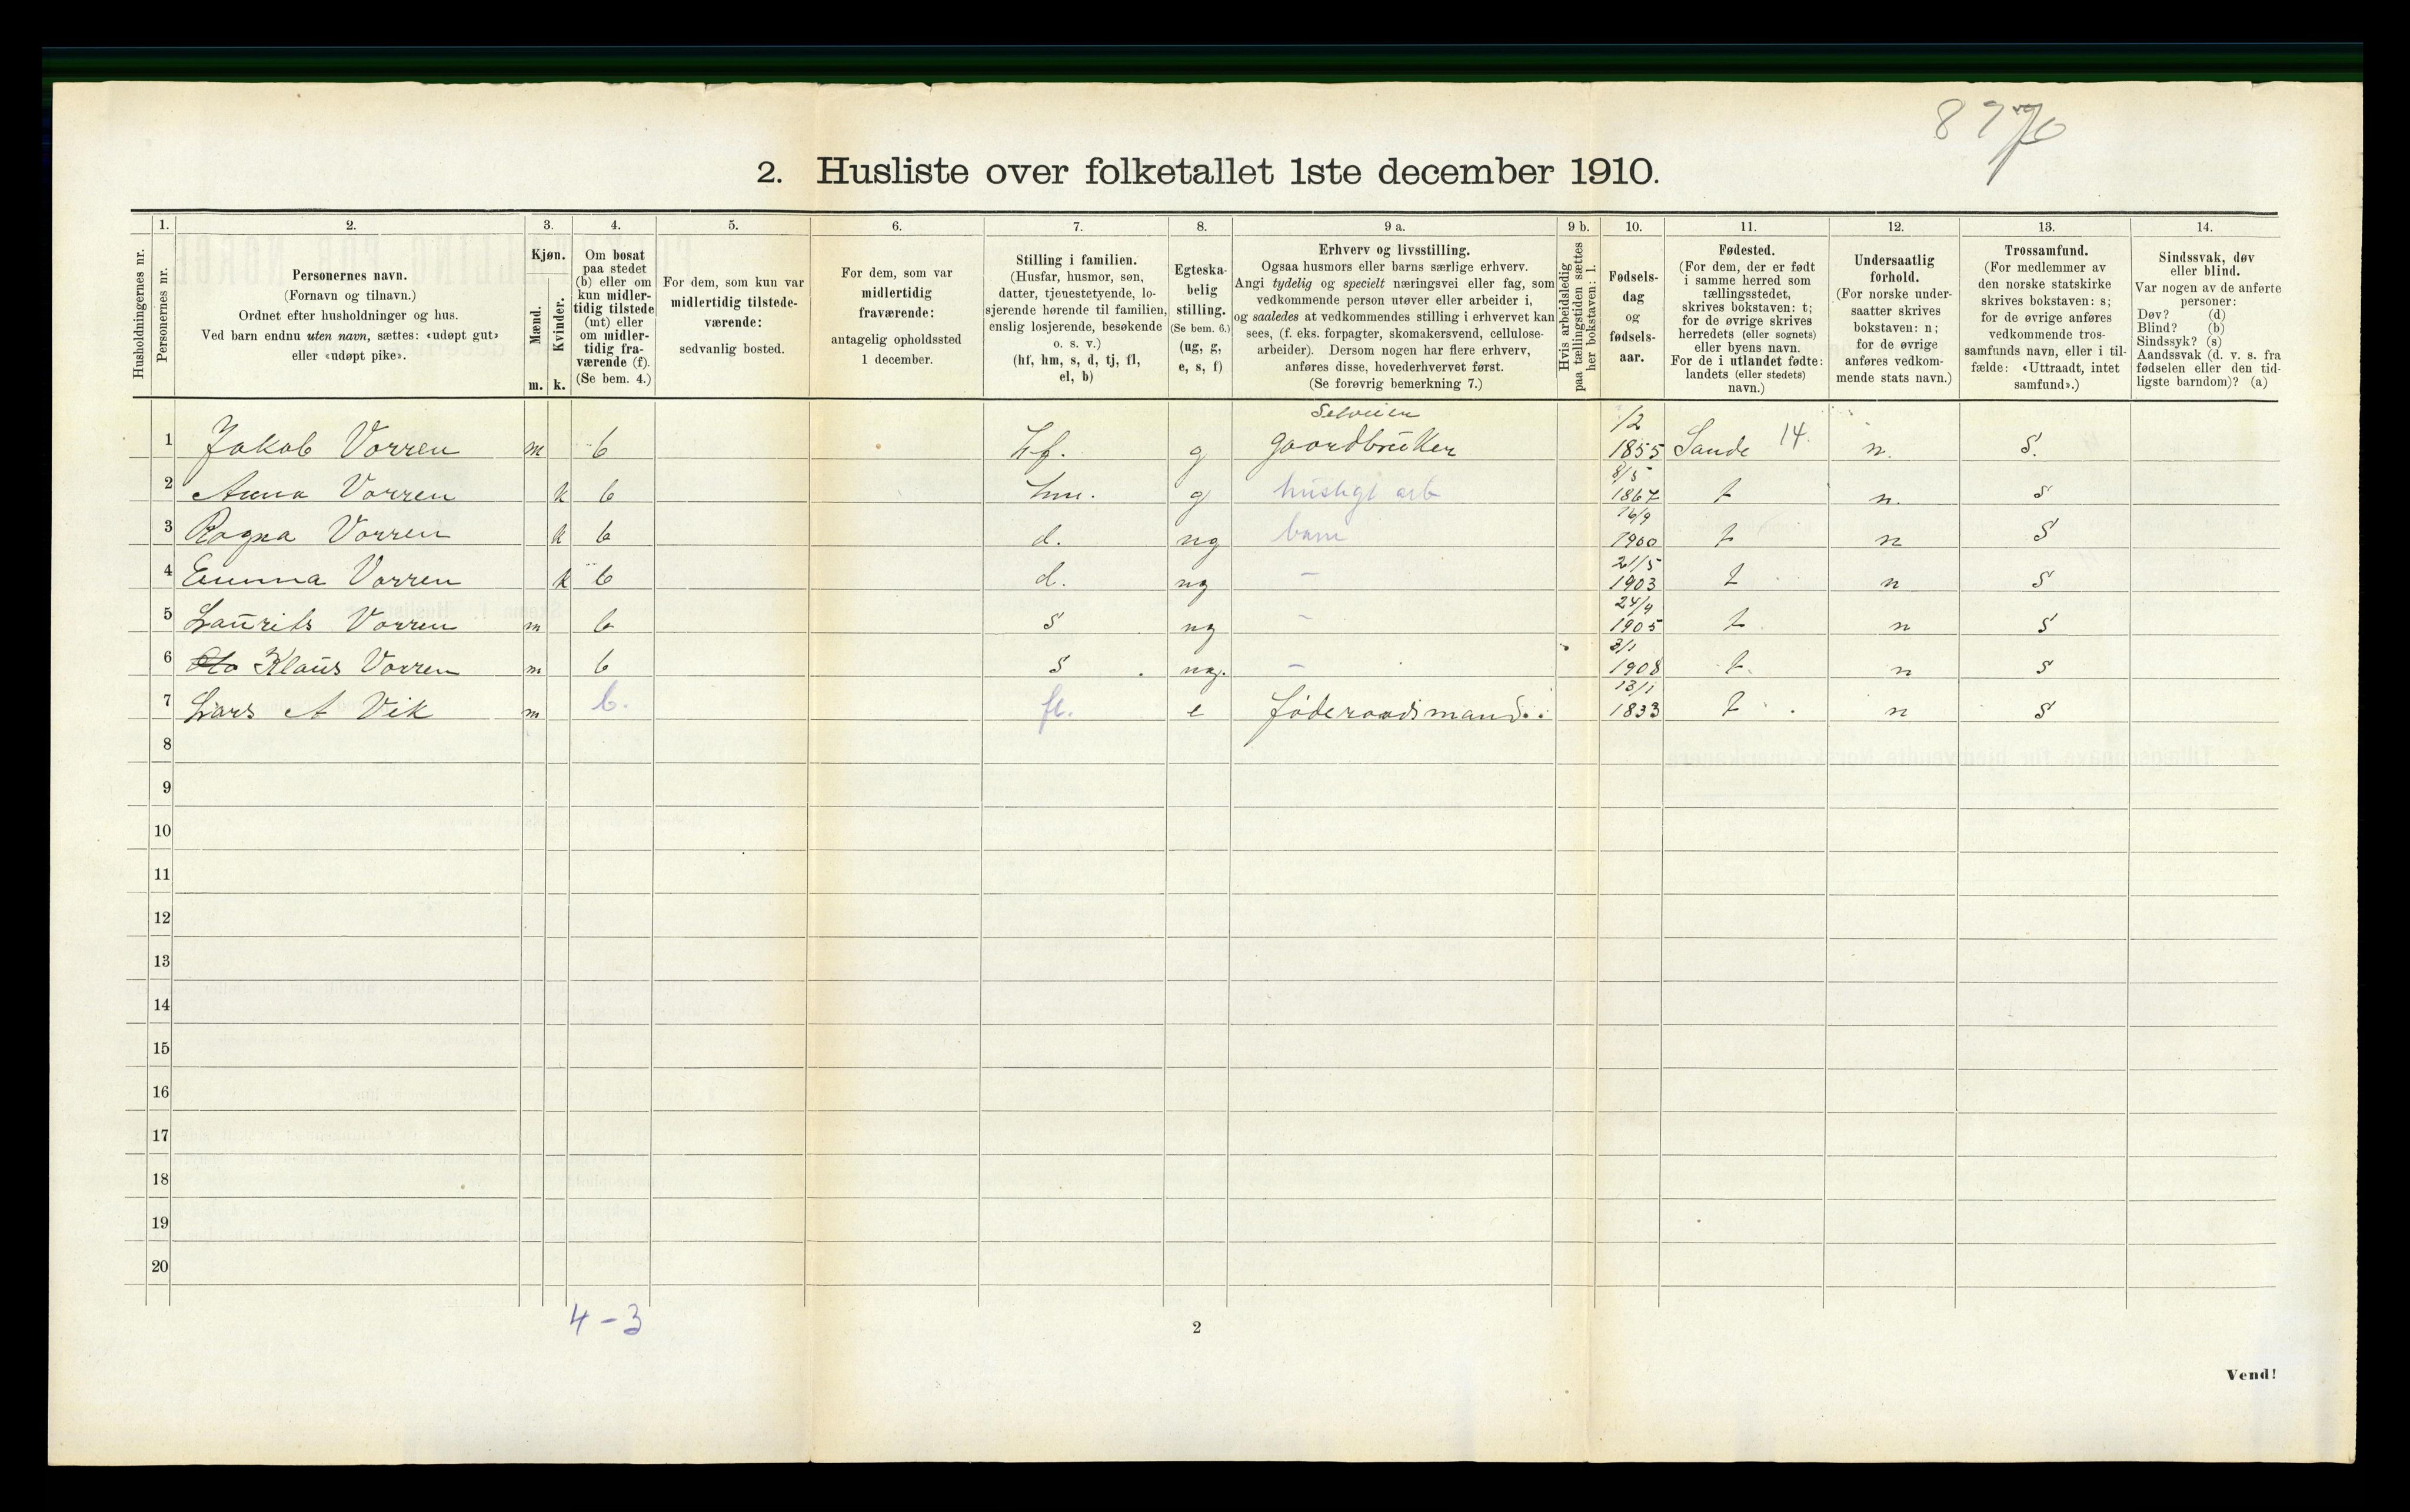 2. Husliste over folketallet 1ste december 1910.
Husholdningernes nr.
1.
Personernes nr.
2.
Personernes navn.
(Fornavn og tilnavn.)
Ordnet efter husholdninger og hus.
Ved barn endnu uten navn, sættes: «udøpt gut»
eller «udøpt pike».
3.
Kjøn.
Mænd.
Kvinder.
m. k.
4.
Om bosat
paa stedet
(b) eller om
kun midler-
tidig tilstede
(mt) eller
om midler-
tidig fra-
værende (f).
(Se bem. 4.)
5.
For dem, som kun var
midlertidig tilstede-
værende:
sedvanlig bosted.
6.
For dem, som var
midlertidig
fraværende:
antagelig opholdssted
1 december.
7.
Stilling i familien.
(Husfar, husmor, søn,
datter, tjenestetyende, lo-
sjerende hørende til familien,
enslig losjerende, besøkende
o. s. v.)
(hf, hm, s, d, tj, fl,
el, b)
8.
Egteska-
belig
stilling.
(Se bem. 6.)
(ug, g,
e, s, f)
9 a.
Erhverv og livsstilling.
Ogsaa husmors eller barns særlige erhverv.
Angi tydelig og specielt næringsvei eller fag, som
vedkommende person utøver eller arbeider i,
og saaledes at vedkommendes stilling i erhvervet kan
sees, (f. eks. forpagter, skomakersvend, cellulose-
arbeider). Dersom nogen har flere erhverv,
anføres disse, hovederhvervet først.
(Se forøvrig bemerkning 7.)
9 b.
Hvis arbeidsledig
paa tællingstiden sættes
her bokstaven: l.
10.
Fødsels-
dag
og
fødsels-
aar.
11.
Fødested.
(For dem, der er født
i samme herred som
tællingsstedet,
skrives bokstaven: t;
for de øvrige skrives
herredets (eller sognets)
eller byens navn.
For de i utlandet fødte:
landets (eller stedets)
navn.)
12.
Undersaatlig
forhold.
(For norske under-
saatter skrives
bokstaven: n;
for de øvrige
anføres vedkom-
mende stats navn.)
13.
Trossamfund.
(For medlemmer av
den norske statskirke
skrives bokstaven: s;
for de øvrige anføres
vedkommende tros-
samfunds navn, eller i til-
fælde: «Uttraadt, intet
samfund».)
14.
Sindssvak, døv
eller blind.
Var nogen av de anførte
personer:
Døv? (d)
Blind? (b)
Sindssyk? (s)
Aandssvak (d. v. s. fra
fødselen eller den tid-
ligste barndom)? (a)
1 Jakob Vorren m b hf. g Selveier gaardbruker 1/2 1855 Sande 14. n. S.
2 Anna Vorren k b hm. g husligt arb 8/5 1867 t n. S
3 Ragna Vorren k b d. ug barn 16/9 1900 t n S
4 Emma Vorren k b d. ug – 21/5 1903 t n S
5 Laurits Vorren m b s ug – 24/9 1905 t n S
6 Klaus Vorren m b s ug. – 3/1 1908 t n S
7 Lars A Vik m b. fl. e føderaadsmand 13/1 1833 t n S
8
9
10
11
12
13
14
15
16
17
18
19
20
4 – 3
2
Vend!